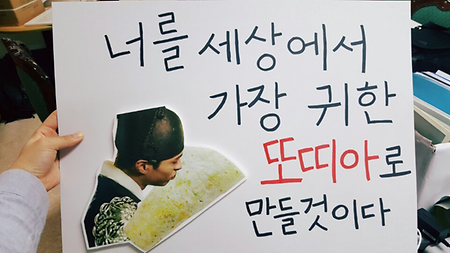 너를 세상에서
가장 귀한
또띠아로
만들것이다